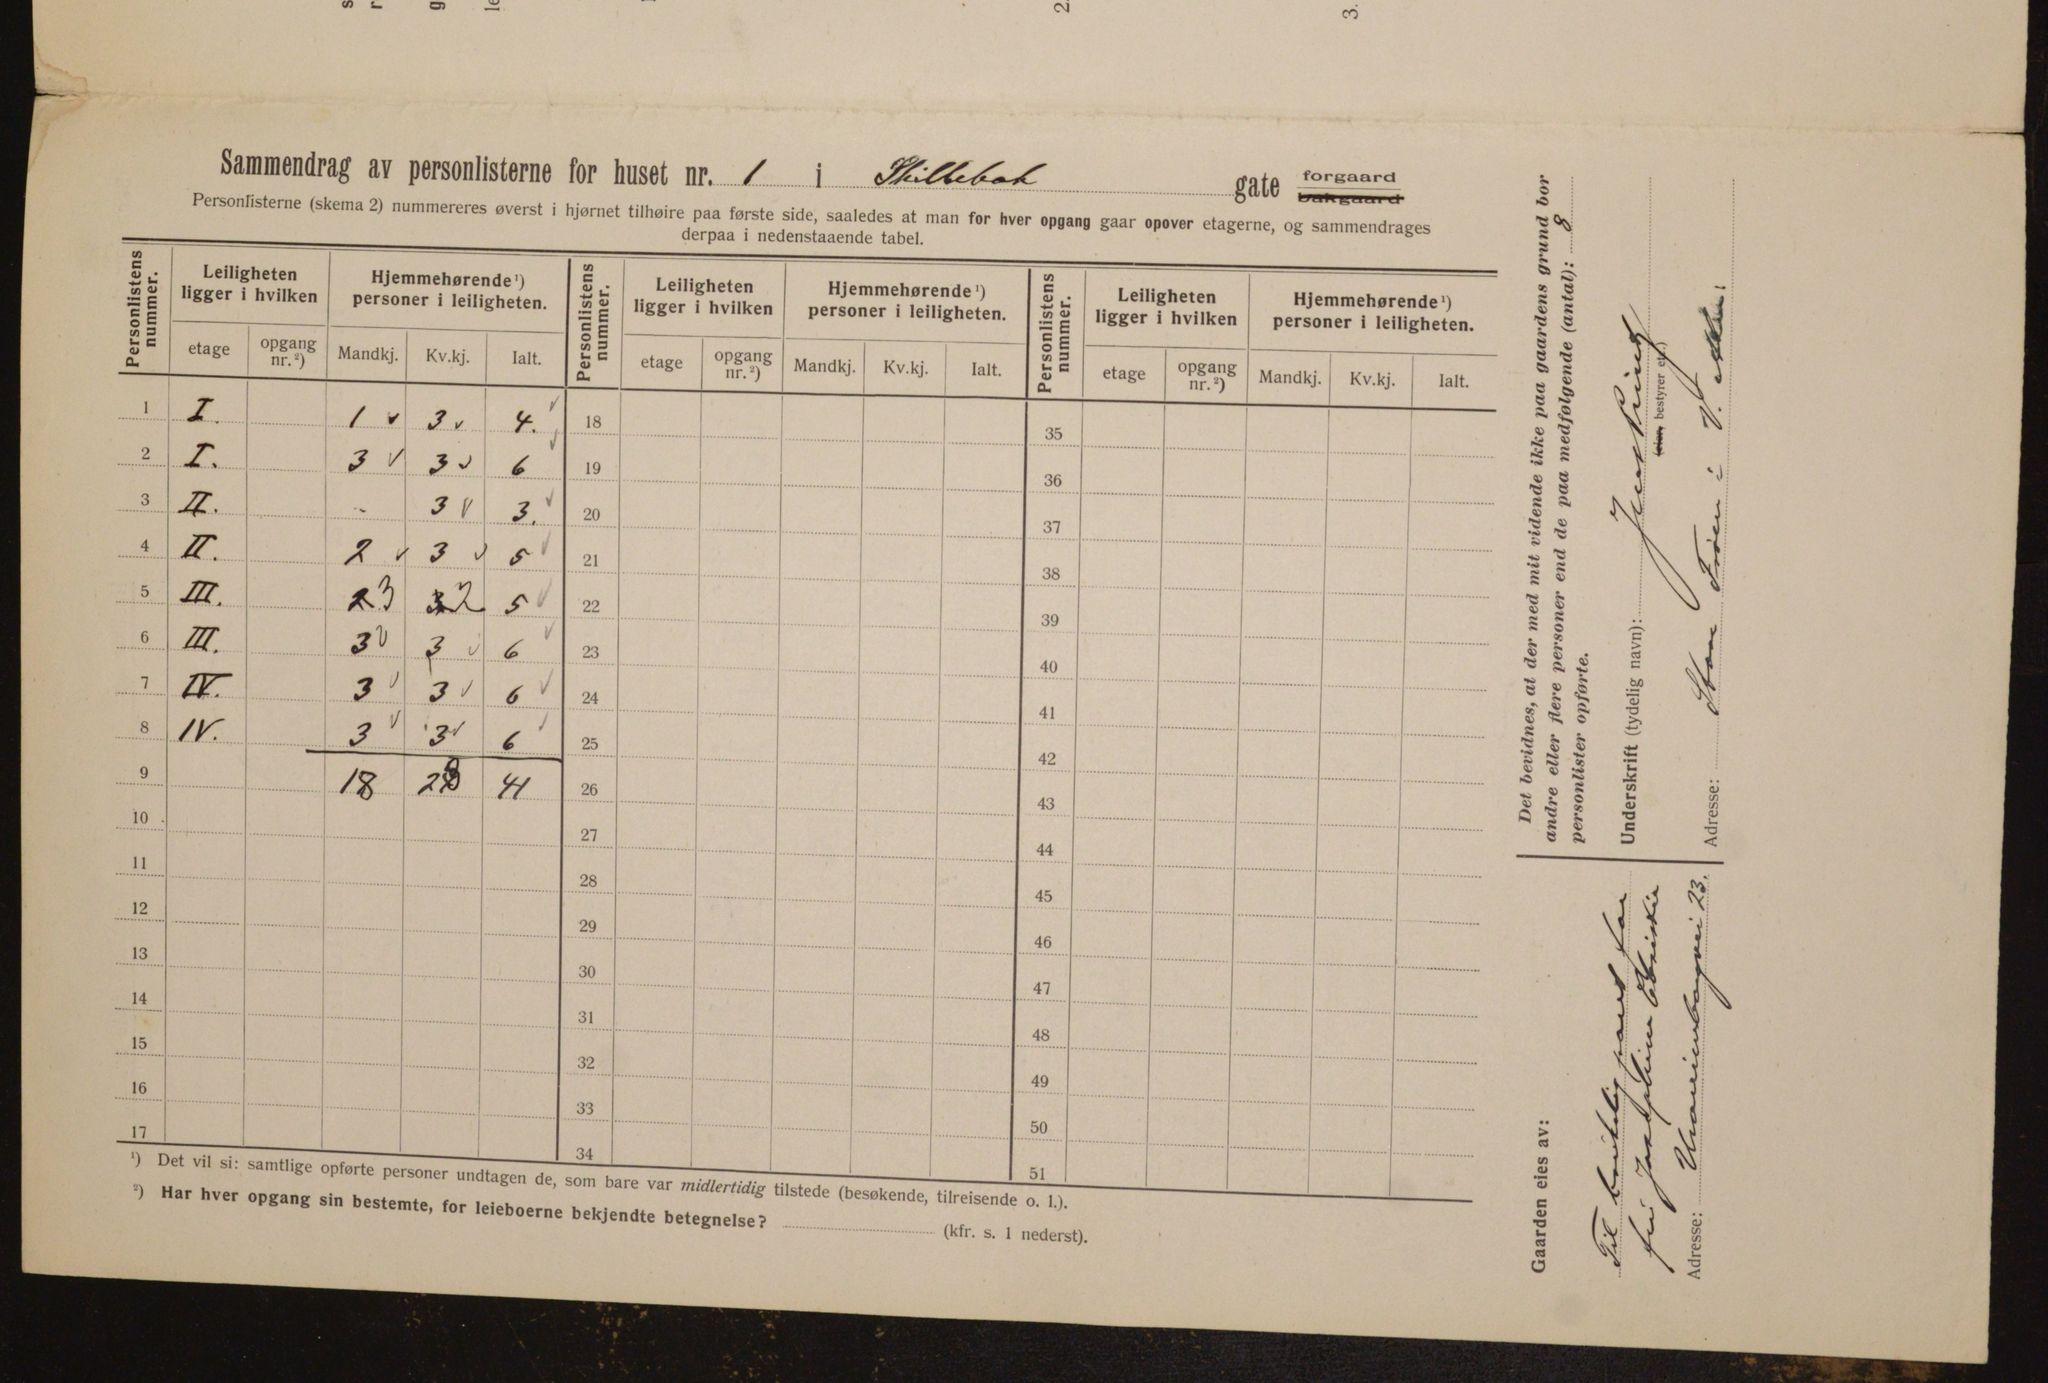 Sammendrag av personlisterne for huset nr. 1 i Skillebek gate forgaard
bakgaard
Personlisterne (skema 2) nummereres øverst i hjørnet tilhøire paa første side, saaledes at man for hver opgang gaar opover etagerne, og sammendrages
derpaa i nedenstaaende tabel.
Personlistens nummer. Leiligheten ligger i hvilken Hjemmehørende ¹) personer i leiligheten. Personlistens nummer. Leiligheten ligger i hvilken Hjemmehørende ¹) personer i leiligheten. Personlistens nummer. Leiligheten ligger i hvilken Hjemmehørende ¹) personer i leiligheten.
etage opgang nr. ²) Mandkj. Kv.kj. Ialt. etage opgang nr. ²) Mandkj. Kv.kj. Ialt. etage opgang nr. ²) Mandkj. Kv.kj. Ialt.
1 I. 1 3 4. 18 35
2 I. 3 3 6 19 36
3 II. - 3 3. 20 37
4 II. 2 3 5 21 38
5 III. 2 3 3 2 5 22 39
6 III. 3 3 6 23 40
7 IV. 3 3 6 24 41
8 IV. 3 3 6 25 42
9 18 23 41 26 43
10 27 44
11 28 45
12 29 46
13 30 47
14 31 48
15 32 49
16 33 50
17 34 51
¹) Det vil si: samtlige opførte personer undtagen de, som bare var midlertidig tilstede (besøkende, tilreisende o. l.).
²) Har hver opgang sin bestemte, for leieboerne bekjendte betegnelse? (kfr. s. 1 nederst).
Det bevidnes, at der med mit vidende ikke paa gaardens grund bor
andre eller flere personer end de paa medfølgende (antal): 8
personlister opførte.
Underskrift (tydelig navn):
bestyrer etc.)
Adresse:
Gaarden eies av:
Til
fru Josephine
Adresse: 23.